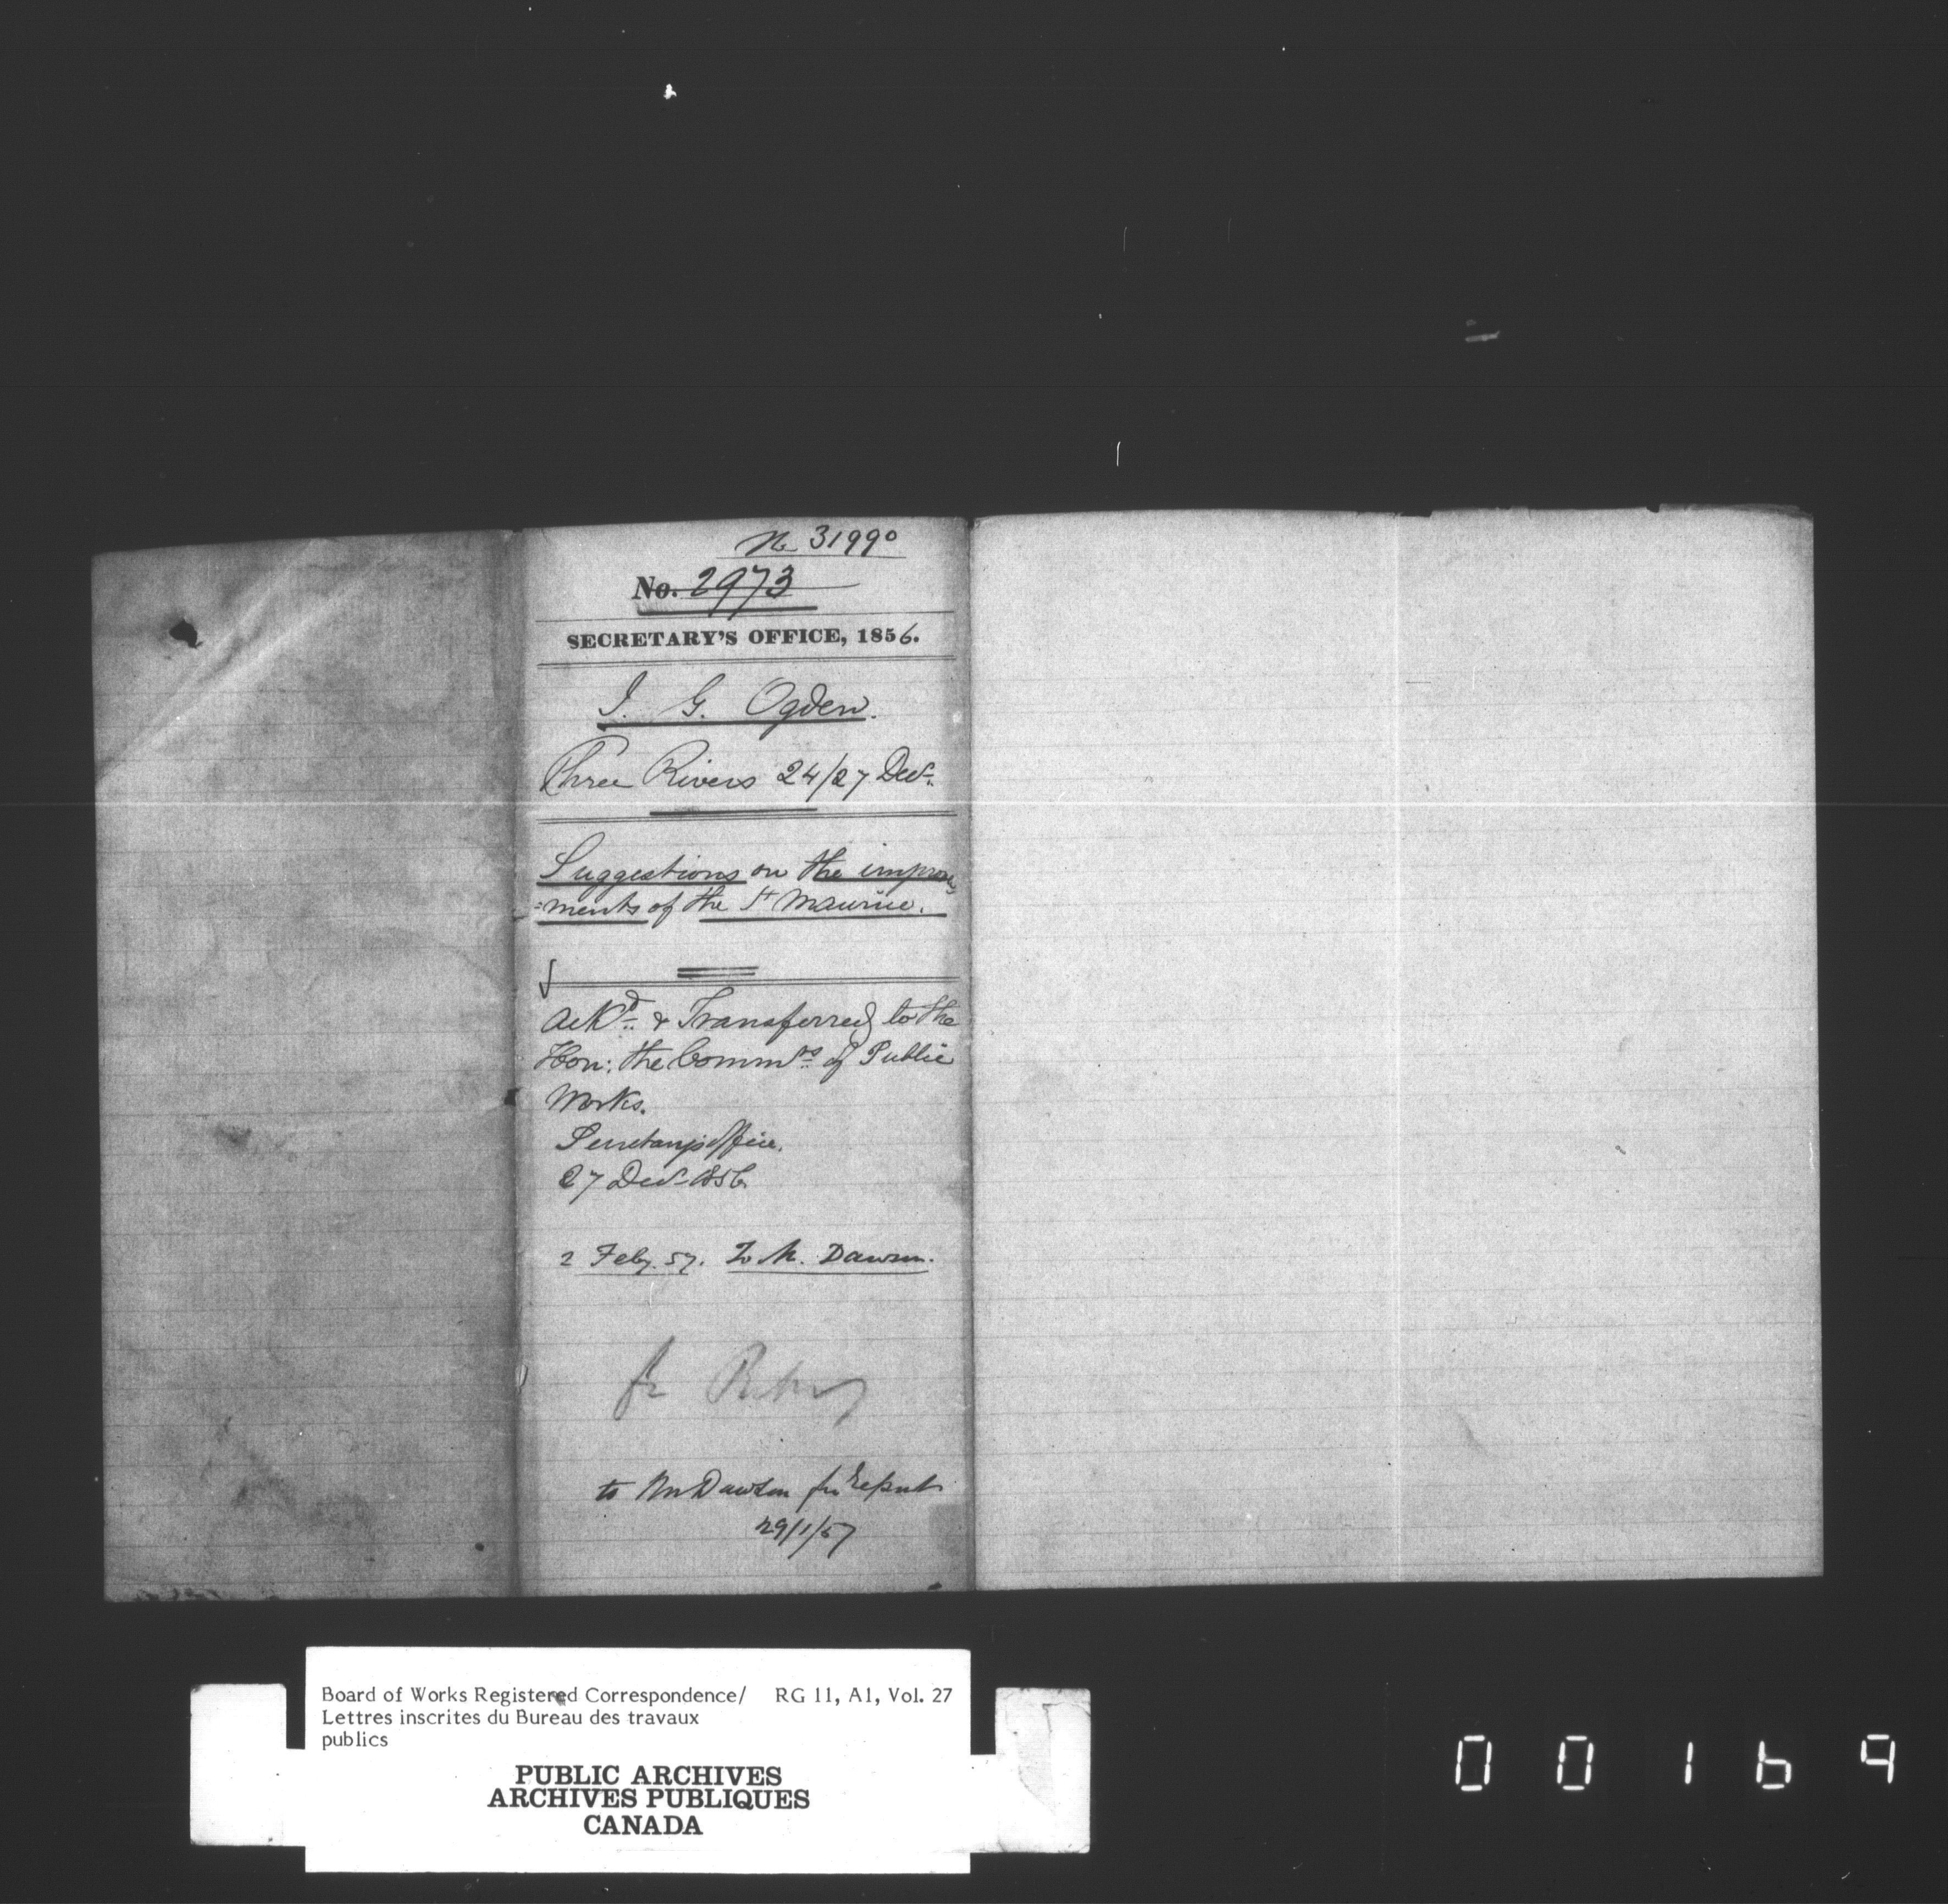 No 31990
No. 2973
SECRETARY'S OFFICE, 1856.
I. G. Ogden.
Three Rivers 24/27 Decr.
Suggestions on the improve
=ments of the St Maurice.
Ackd. & Transferred to the
Hon: the Commrs of Public
Works.
Secretary's office.
27 Decr 1856
2 Feby. 57. To Mr. Dawson.
to Mr Dawson for Report
29/1/57
Board of Works Registered Correspondence/ RG 11, A1, Vol. 27
Lettres inscrites du Bureau des travaux
publics
PUBLIC ARCHIVES
ARCHIVES PUBLIQUES
CANADA
00169